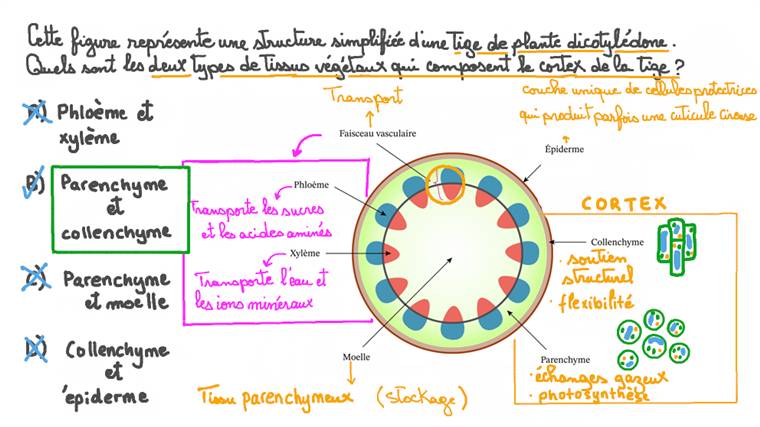 Cette figure représente une structure simplifiée d'une tige de plante dicotylédone.
Quels sont les deux types de tissus végétaux qui composent le cortex de la tige ?
A) Phloème et
xylème
B) Parenchyme
et
collenchyme
C) Parenchyme
et moelle
D) Collenchyme
et
épiderme
Transport
Faisceau vasculaire
couche unique de cellules protectrices
qui produit parfois une cuticule cireuse
Épiderme
Phloème
Transporte les sucres
et les acides aminés
Xylème
Transporte l'eau et
les ions minéraux
CORTEX
Collenchyme
· soutien
structurel
· flexibilité
Moelle
Tissu parenchymeux (stockage)
Parenchyme
· échanges gazeux
· photosynthèse